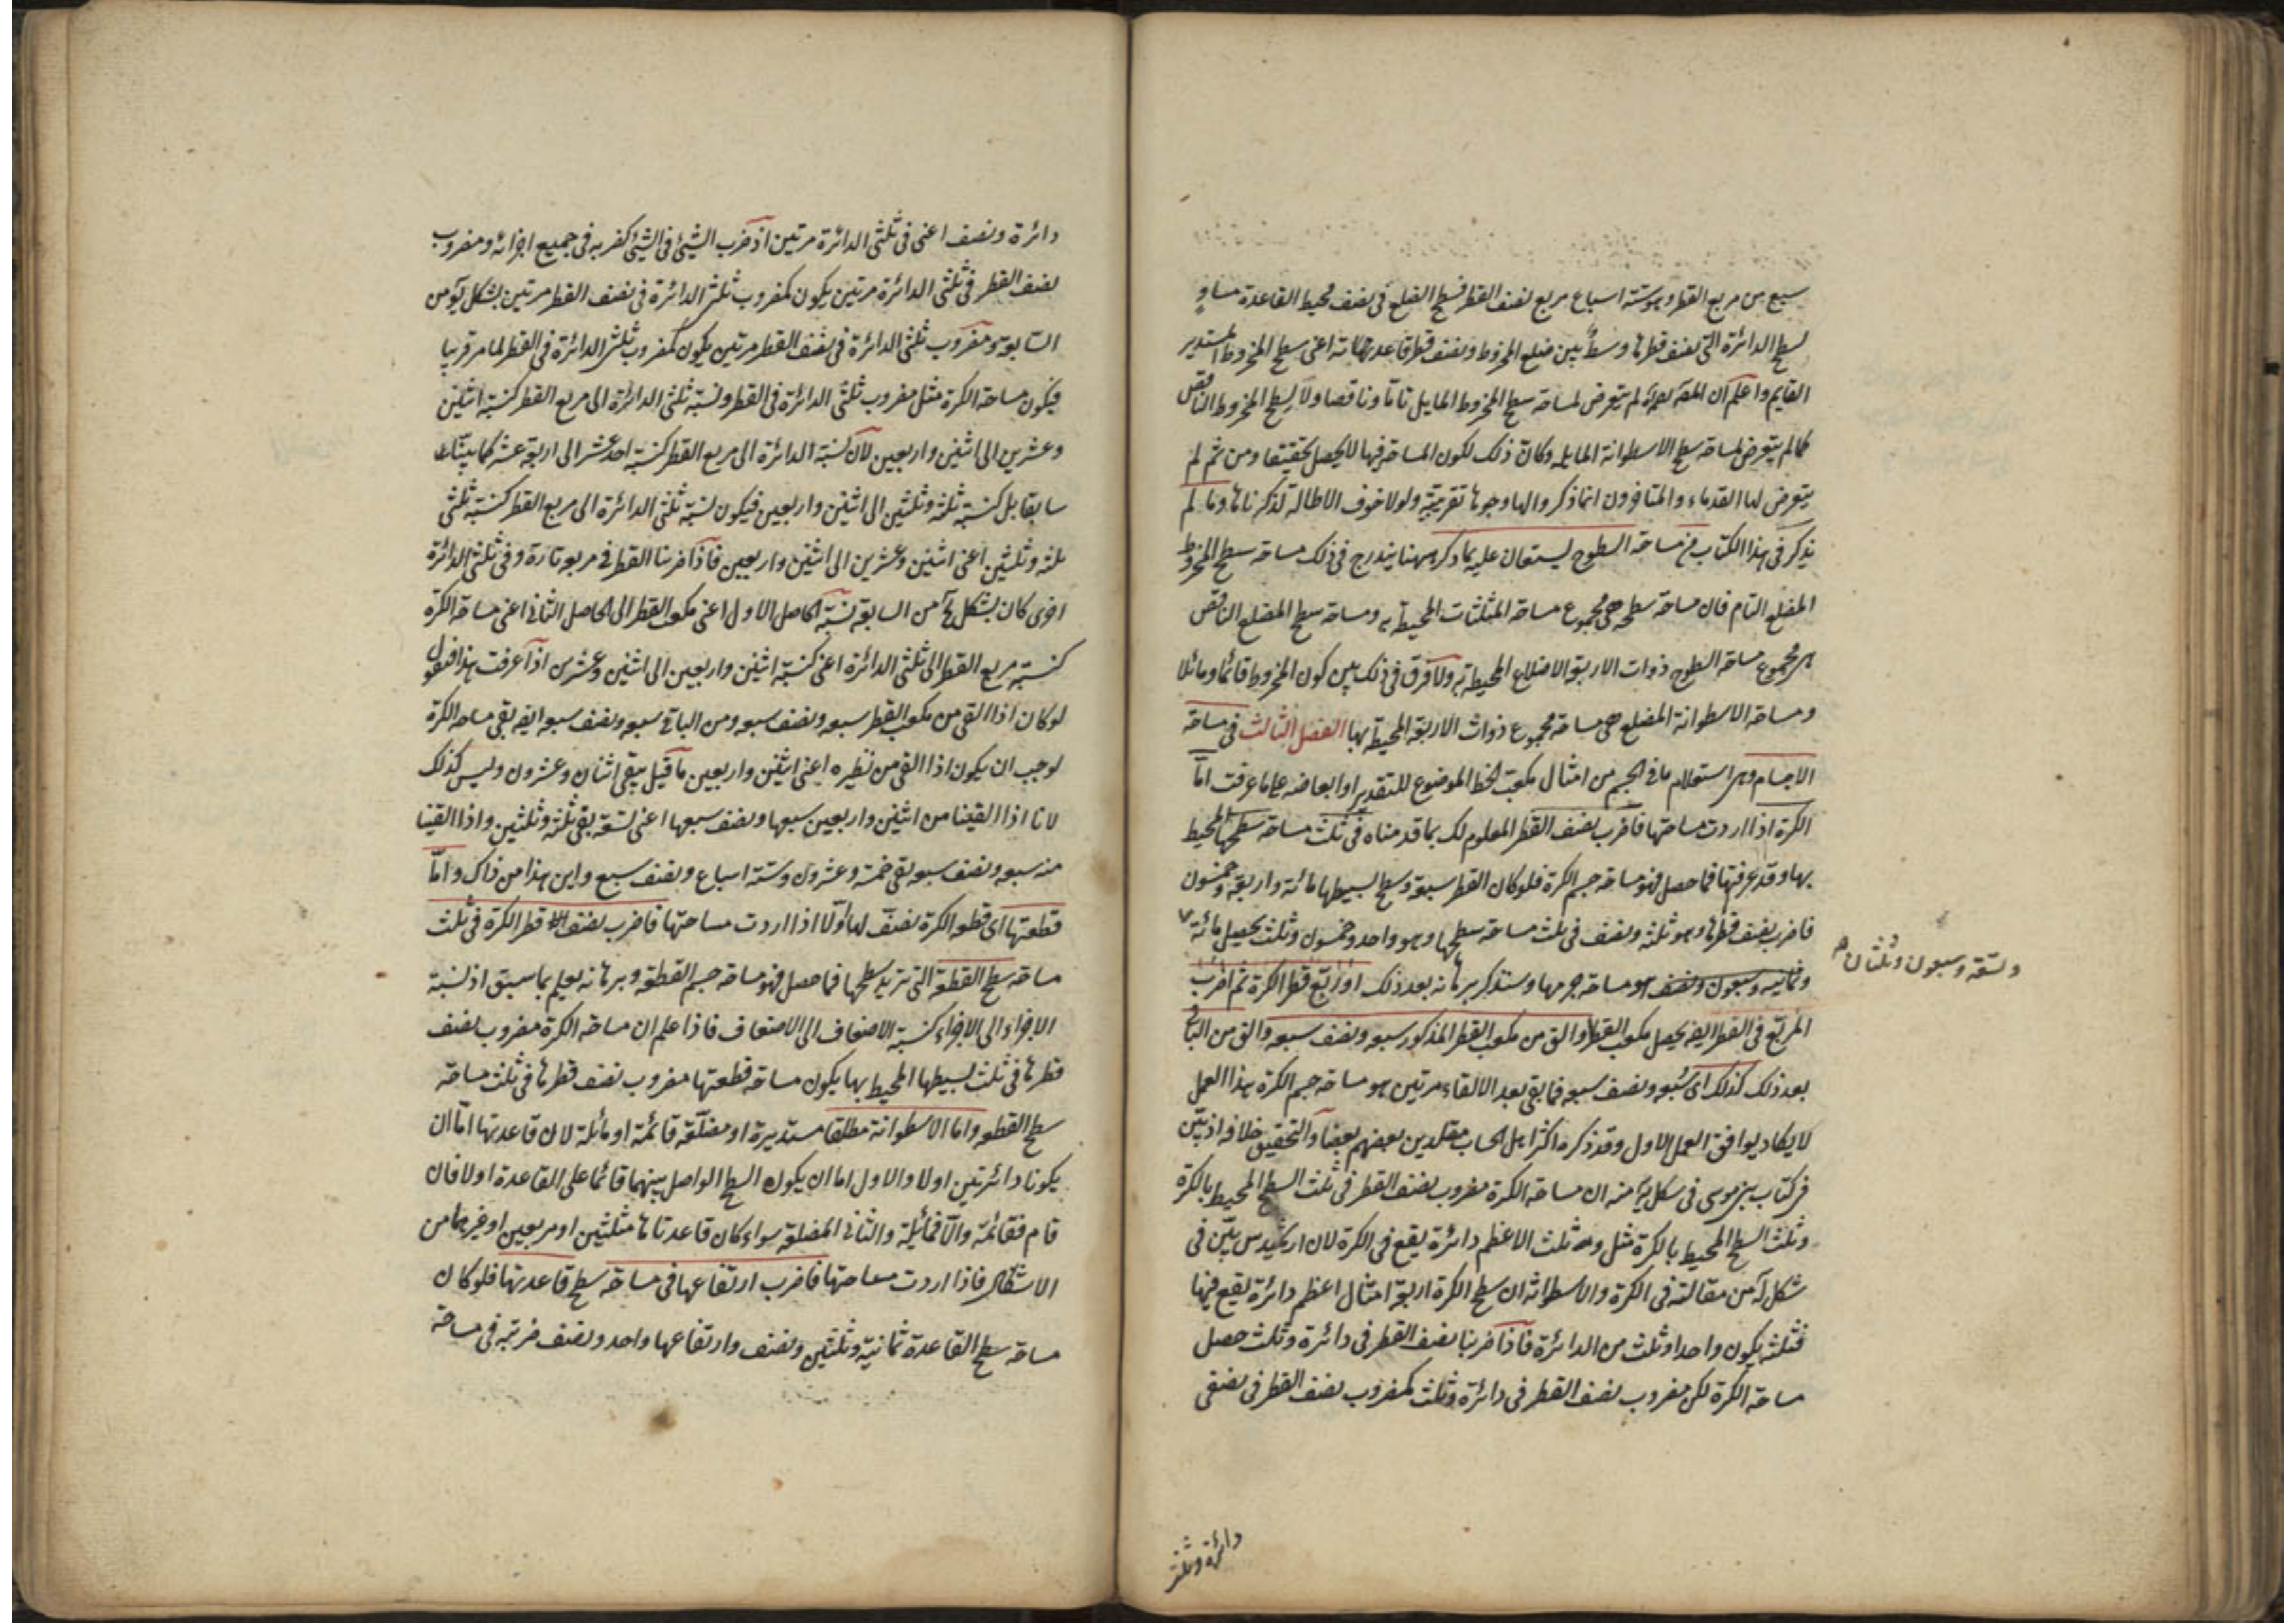 سبع من مربع القطر وهو ستة اسباع مربع نصف القطر فسطح الضلع فى نصف محيط القاعدة مساوٍ
لسطح الدائرة التى نصف قطرها وسط بين ضلع المخروط ونصف قطر قاعدته اعنى سطح المخروط المستدير
القايم واعلم ان المصَ لم يتعرض لمساحة سطح المخروط المايل تاما وناقصا ولا لسطح المخروط الناقص
كما لم يتعرض لمساحة سطح الاسطوانة المايله وكان ذلك لكون المساحة فيها لا يحصل تحقيقا ومن ثم لم
يتعرض لها القدماء والمتاخرون انما ذكروا لها وجوها تقريبية ولولا خوف الاطالة لذكرناها وما لم
يذكر فى هذا الكتاب من مساحة السطوح يستعان عليه بما ذكر ههنا يندرج فى ذلك مساحة سطح المخروط
المضلع التام فان مساحة سطحه هى مجموع مساحة المثلثات المحيطة به ومساحة سطح المضلع الناقص
هى مجموع مساحة السطوح ذوات الاربعة الاضلاع المحيطة به ولا فرق فى ذلك بين كون المخروط قائما ومائلا
ومساحة الاسطوانة المضلع هى مساحة مجموع ذوات الاربعة المحيطة بها الفصل الثالث فى مساحة
الاجسام وهى استعلام ما فى الجسم من امثال مكعب الخط الموضوع للتقدير او ابعاضه على ما عرفت امّا
الكرة اذا اردت مساحتها فاضرب نصف القطر المعلوم لك بما قدمناه فى ثلث مساحة سطحها المحيط
بها وقد عرفتها فما حصل فهو مساحة جسم الكرة فلو كان القطر سبعة وسطح بسيطها مائة واربعة وخمسون
فاضرب نصف قطرها وهو ثلثة ونصف فى ثلث مساحة سطحها وهو واحد وخمسون وثلث يحصل مائة
وتسعة وسبعون وثلثان
وثمانيه وسبعون ونصف هو مساحة جرمها وستذكر برهانه بعد ذلك او ربّع قطر الكرة ثم اضرب
المربّع فى القطر ايضا يحصل مكعب القطر والق من مكعب القطر المذكور سبعه ونصف سبعه والق من الباقى
بعد ذلك كذلك اى سُبعه ونصف سبعه فما بقى بعد الالقاء مرتين هو مساحة جسم الكرة بهذا العمل
لا يكاد يوافق العمل الاول وقد ذكره اكثر اهل الحساب مقلدين بعضهم بعضا والتحقيق خلافه اذ تبيّن
فى كتاب بنى موسى فى شكل يه منه ان مساحة الكرة مضروب نصف القطر فى ثلث السطح المحيط بالكرة
وثلث السطح المحيط بالكرة مثل وثلث الاعظم دائرة يقع فى الكرة لان ارشميدس بيّن فى
شكل لَه من مقالته فى الكرة والاسطوانة ان سطح الكرة اربعة امثال اعظم دائرة يقع فيها
فثلثه يكون واحدا وثلث من الدائرة فاذا ضربنا نصف القطر فى دائرة وثلث حصل
مساحة الكرة لكن مضروب نصف القطر فى دائرة وثلث كمضروب نصف القطر فى نصفى
دائرة وثلثى
دائرة ونصف اعنى فى ثلثى الدائرة مرتين اذ ضرب الشئ فى الشئ كضربه فى جميع اجزائه ومضروب
نصف القطر فى ثلثى الدائرة مرتين يكون كمضروب ثلثى الدائرة فى نصف القطر مرتين بشكل من
السابعة ومضروب ثلثى الدائرة فى نصف القطر مرتين يكون كمضروب ثلثى الدائرة فى القطر لما مر قريبا
فيكون مساحة الكرة مثل مضروب ثلثى الدائرة فى القطر ونسبة ثلثى الدائرة الى مربع القطر كنسبة اثنين
وعشرين الى اثنين واربعين لان نسبة الدائرة الى مربع القطر كنسبة احد عشر الى اربعة عشر كما بيناه
سابقا بل كنسبة ثلثة وثلثين الى اثنين واربعين فيكون نسبة ثلثى الدائرة الى مربع القطر كنسبة ثلثى
ثلثه وثلثين اعنى اثنين وعشرين الى اثنين واربعين فاذا ضربنا القطر فى مربعه تارة وفى ثلثى الدائرة
اخرى كان بشكل من السابعة نسبة الحاصل الاول اعنى مكعب القطر الى الحاصل الثانى اعنى مساحة الكرة
كنسبة مربع القطر الى ثلثى الدائرة اعنى كنسبة اثنين واربعين الى اثنين وعشرين اذا عرفت هذا فنقول
لو كان اذا القى من مكعب القطر سبعه ونصف سبعه ومن الباقى سبعه ونصف سبعه ايضا بقى مساحة الكرة
لوجب ان يكون اذا القى من نظيره اعنى اثنين واربعين ما قيل يبقى اثنان وعشرون وليس كذلك
لانا اذا القينا من اثنين واربعين سبعها ونصف سبعها اعنى تسعة بقى ثلثة وثلثين واذا القينا
منه سبعه ونصف سبعه بقى خمسة وعشرون وستة اسباع ونصف سبع واين هذا من ذاك وامّا
قطعتها اى قطعة الكرة نصفّ لها اوّلا اذا اردت مساحتها فاضرب نصف قطر الكرة فى ثلث
مساحة سطح القطعة التى تريد سطحها فما حصل فهو مساحة جسم القطعة وبرهانه يعلم بما سبق اذ نسبة
الاجزاء الى الاجزاء كنسبة الاضعاف الى الاضعاف فاذا علم ان مساحة الكرة مضروب نصف
قطرها فى ثلث بسيطها المحيط بها يكون مساحة قطعتها مضروب نصف قطرها فى ثلث مساحة
سطح القطعه واما الاسطوانة مطلقا مستديرة او مضلعة قائمة او مائلة لان قاعدتها امّا ان
يكونا دائرتين اولا والاول اما ان يكون السطح الواصل بينهما قائما على القاعدة اولا فان
قام فقائمة والّا فمائلة والثانى المضلعة سواء كان قاعدتاها مثلثين او مربعين او غيرهما من
الاشكال فاذا اردت مساحتها فاضرب ارتفاعها فى مساحة سطح قاعدتها فلو كان
مساحة سطح القاعدة ثمانية وثلثين ونصف وارتفاعها واحد ونصف ضربته فى مساحة